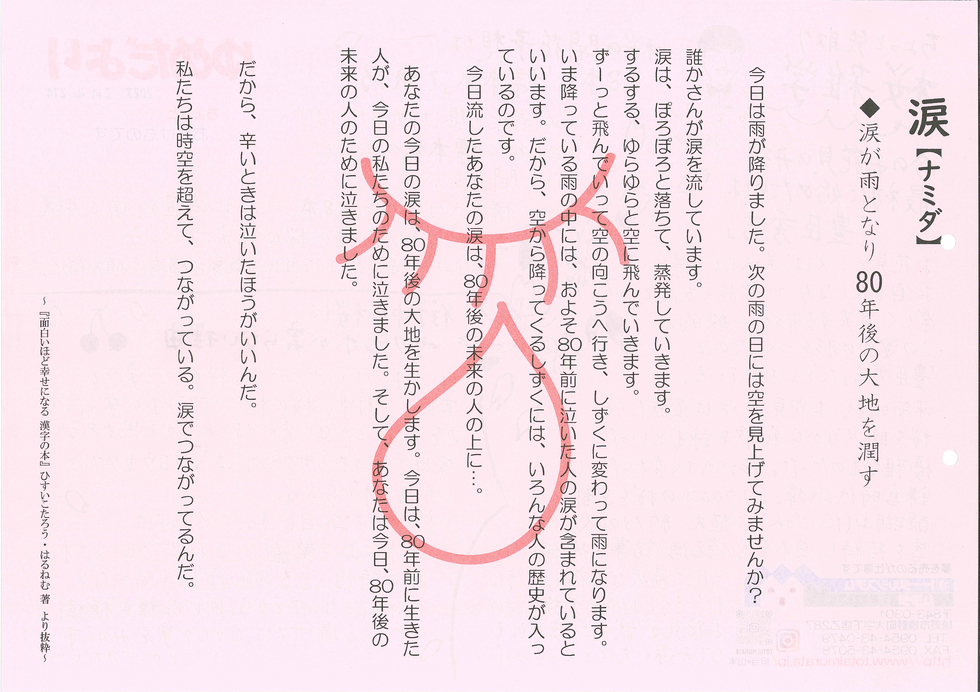 涙【ナミダ】
◆涙が雨となり 80年後の大地を潤す
今日は雨が降りました。次の雨の日には空を見上げてみませんか？
誰かさんが涙を流しています。
涙は、ぽろぽろと落ちて、蒸発していきます。
するする、ゆらゆらと空に飛んでいきます。
ずーっと飛んでいって空の向こうへ行き、しずくに変わって雨になります。
いま降っている雨の中には、およそ80年前に泣いた人の涙が含まれていると
いいます。だから、空から降ってくるしずくには、いろんな人の歴史が入っ
ているのです。
今日流したあなたの涙は、80年後の未来の人の上に…。
あなたの今日の涙は、80年後の大地を生かします。今日は、80年前に生きた
人が、今日の私たちのために泣きました。そして、あなたは今日、80年後の
未来の人のために泣きました。
だから、辛いときは泣いたほうがいいんだ。
私たちは時空を超えて、つながっている。涙でつながってるんだ。
～『面白いほど幸せになる 漢字の本』ひすいこたろう・はるねむ 著 より抜粋～